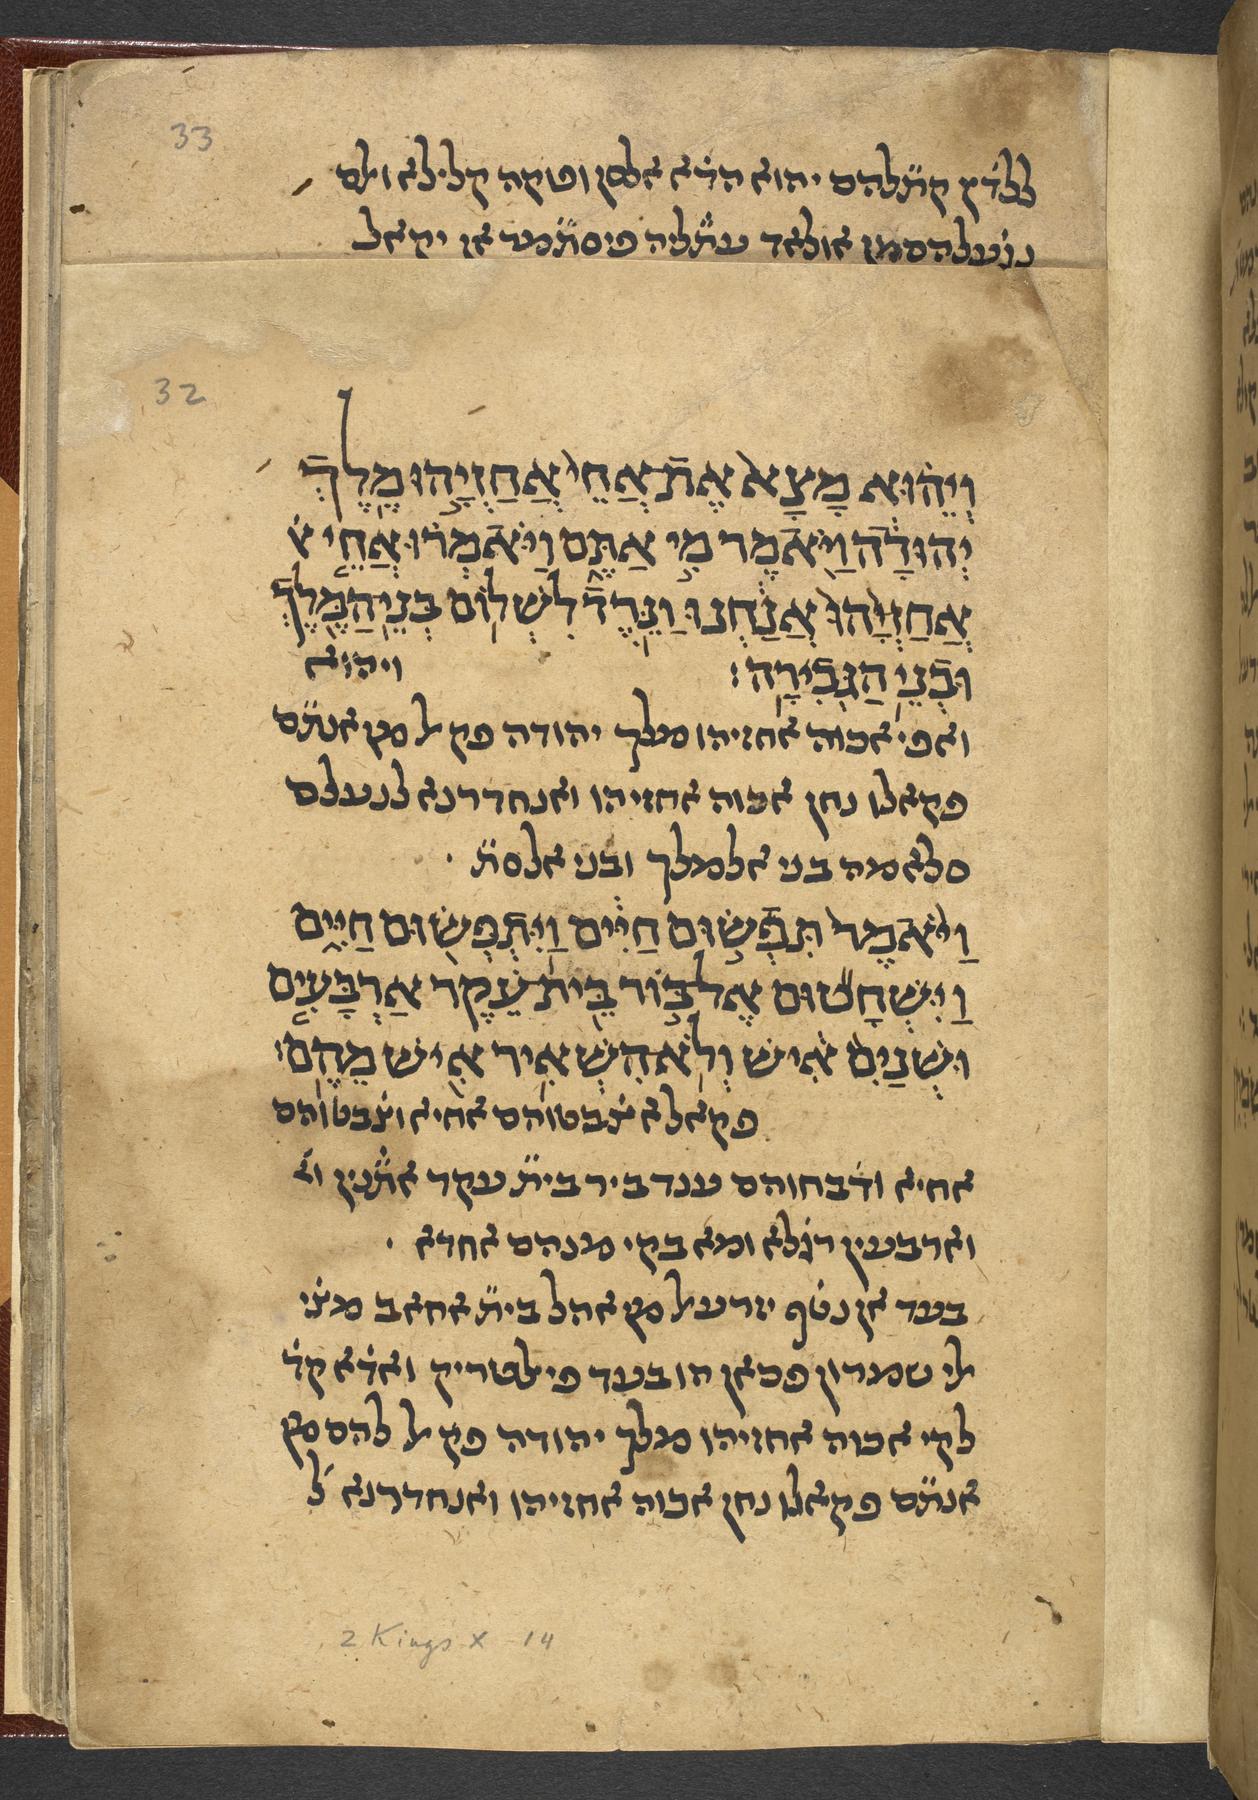 33
כלדׄך קתׄלהם יהוא הדׄא אלסן וטקה קלילא ולם
נגׄעלהם מן אולאד עתׄליה פיסתׄמר אן יקאל
32
וְיֵה֗וּא מָצָא֙ אֶת־אֲחֵי֙ אֲחַזְיָ֣הוּ מֶֽלֶךְ־
יְהוּדָ֔ה וַיֹּ֖אמֶר מִ֣י אַתֶּ֑ם וַיֹּאמְר֗וּ אֲחֵ֤י
אֲחַזְיָ֙הוּ֙ אֲנַ֔חְנוּ וַנֵּ֛רֶד לִשְׁל֥וֹם בְּנֵֽי־הַמֶּ֖לֶךְ
וּבְנֵ֥י הַגְּבִירָֽה׃ ויהוא
ואפי אכוה אחזיהו מלך יהודה פקאל מן אנתׄם
פקאלו נחן אכוה אחזיהו ואנחדרנא לנעלם
סלאמה בני אלמלך ובני אלסתׄ
וַיֹּ֙אמֶר֙ תִּפְשׂ֣וּם חַיִּ֔ים וַֽיִּתְפְּשׂ֖וּם חַיִּ֑ים
וַֽיִּשְׁחָט֞וּם אֶל־בּ֣וֹר בֵּֽית־עֵ֗קֶד אַרְבָּעִ֤ים
וּשְׁנַ֙יִם֙ אִ֔ישׁ וְלֹֽא־הִשְׁאִ֥יר אִ֖ישׁ מֵהֶֽם׃
פקאל אצׄבטוהם אחיא וצׄבטוהם
אחיא ודׄבחוהם ענד ביר ביתׄ עקד אתׄנין
וארבעין רגׄלא ומא בקי מנהם אחדא
בעד אן נטׄף יזרעאל מן אהל ביתׄ אחאב מצׄי
אלי שמרון פכאן הו בעד פי אלטריק ואדׄא קדׄ
לקי אכוה אחזיהו מלך יהודה פקאל להם מן
אנתׄם פקאלו נחן אכוה אחזיהו ואנחדרנא
2 Kings X 14